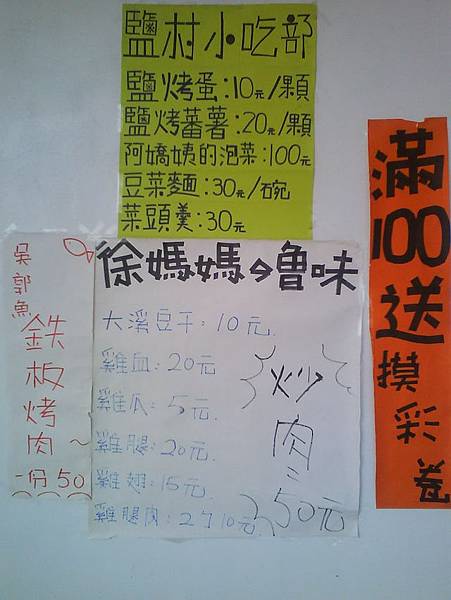 鹽村小吃部
鹽烤蛋:10元/顆
鹽烤蕃薯:20元/顆
阿嬌姨的泡菜:100元
豆菜麵:30元/碗
菜頭羹:30元
吳郭魚
鉄板烤肉~
一份50
徐媽媽的魯味
大溪豆干:10元
雞血:20元
雞爪:5元
雞腿:20元
雞翅:15元
雞腿肉:2個10元
炒肉:50元
滿100送摸彩卷